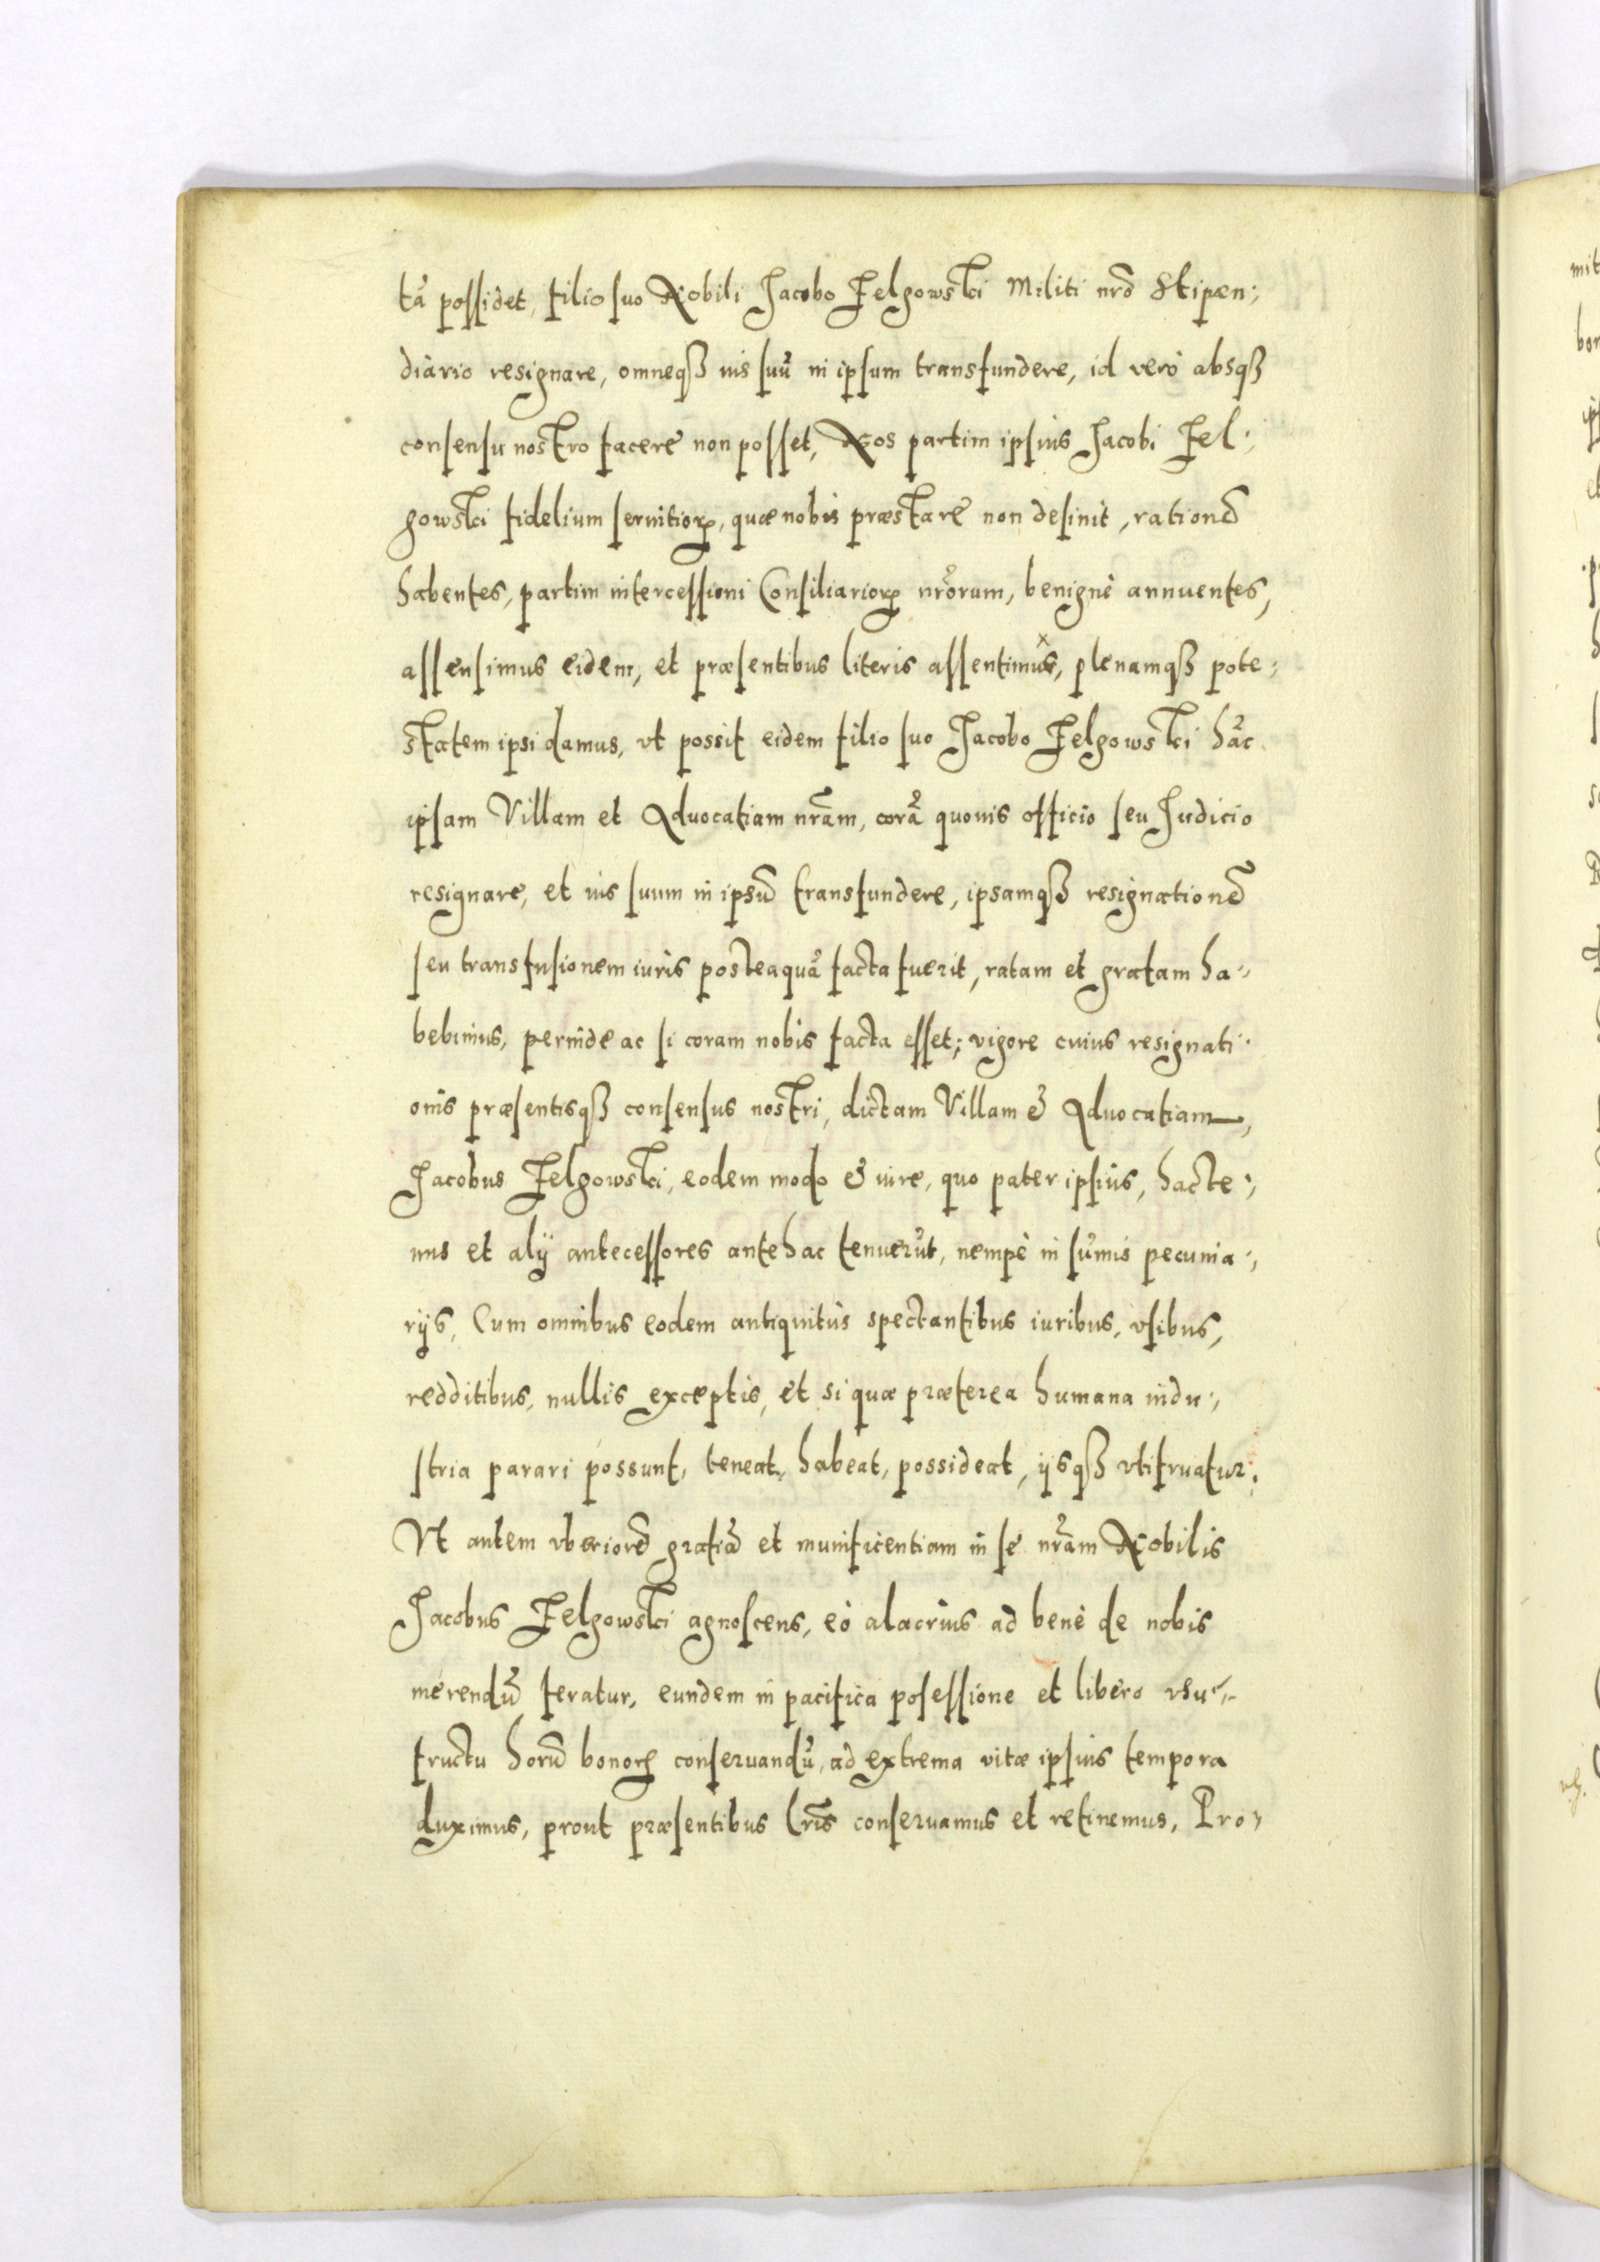 tã possidet, filio suo Nobili Jacobo Felgowski Militi nrō Stipen:
diario resignare, omneqꝫ ius suũ in ipsum transfundere, id verò absqꝫ
consensu nostro facere non posset, Nos partim ipsius Jacobi Fel:
gowski fidelium seruitioꝝ, quæ nobis præstare non desinit, rationē
habentes, partim intercessioni Consiliarioꝝ nr̃orum, benignè annuentes,
assensimus eidem, et præsentibus literis assentimus, plenamqꝫ pote:
statem ipsi damus, vt possit eidem filio suo Jacobo Felgowski hãc
ipsam Villam et Aduocatiam nr̃am, corã quouis officio seu Judicio
resignare, et ius suum in ipsū transfundere, ipsamqꝫ resignationē
seu transfusionem iuris posteaquã facta fuerit, ratam et gratam ha:
bebimus, perinde ac si coram nobis facta esset; vigore cuius resignati:
onis præsentisqꝫ consensus nostri, dictam Villam & Aduocatiam,
Jacobus Felgowski, eodem modo & iure, quo pater ipsius, hacte:
nus et alÿ antecessores antehac tenuerũt, nempè in sũmis pecunia:
rÿs, Cum omnibus eodem antiquitùs spectantibus iuribus, vsibus,
redditibus, nullis exceptis, et si quæ præterea humana indu:
stria parari possunt, teneat, habeat, possideat, ÿsqꝫ vtifruatur.
Vt autem vberiorē gratiā et munificentiam in se nr̃am Nobilis
Jacobus Felgowski agnoscens, eò alacrius ad benè de nobis
merendū feratur, eundem in pacifica posessione et libero vsu:
fructu horū bonoꝝ conseruandũ, ad extrema vitæ ipsius tempora
duximus, prout præsentibus lr̃is conseruamus et retinemus, Pro: